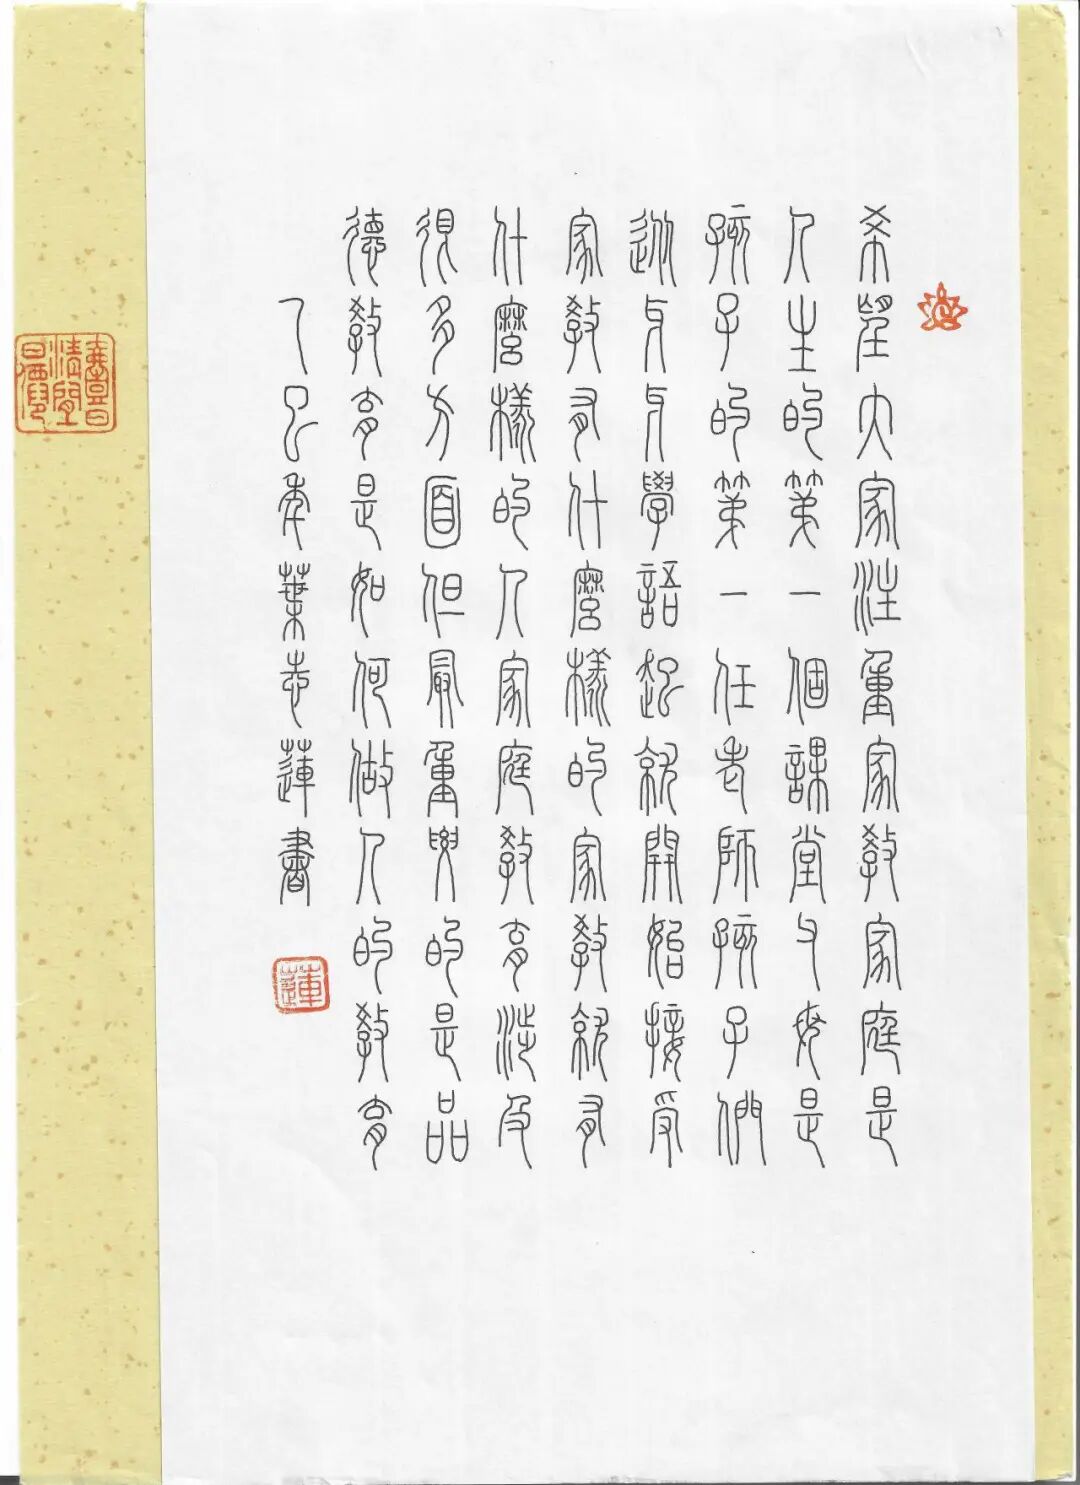 希望大家注重家教家庭是
人生的第一個課堂父母是
孩子的第一任老師孩子們
從牙牙學語起就開始接受
家教有什麼樣的家教就有
什麼樣的人家庭教育涉及
很多方面但最重要的是品
德教育是如何做人的教育
乙巳年葉志蓮書
蓮